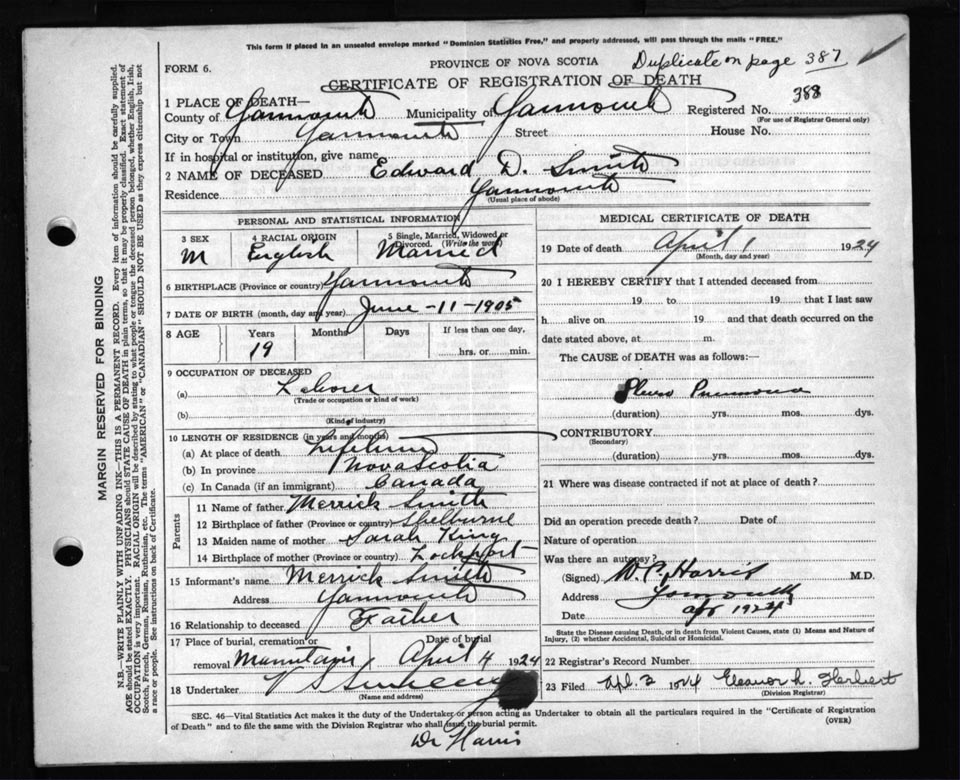 This form if placed in an unsealed envelope marked "Dominion Statistics Free," and properly addressed, will pass through the mails "FREE."
FORM 6.
PROVINCE OF NOVA SCOTIA
Duplicate on page 387
CERTIFICATE OF REGISTRATION OF DEATH
388
1 PLACE OF DEATH—
County of Yarmouth Municipality of Yarmouth Registered No.
(For use of Registrar General only)
City or Town Yarmouth Street House No.
If in hospital or institution, give name
2 NAME OF DECEASED Edward D. Smith
Residence Yarmouth
(Usual place of abode)
PERSONAL AND STATISTICAL INFORMATION
3 SEX 4 RACIAL ORIGIN 5 Single, Married, Widowed or Divorced. (Write the word)
M English Married
6 BIRTHPLACE (Province or country) Yarmouth
7 DATE OF BIRTH (month, day and year) June - 11 - 1905
8 AGE Years Months Days If less than one day,
19 hrs. or min.
9 OCCUPATION OF DECEASED
(a) Laborer
(Trade or occupation or kind of work)
(b)
(Kind of industry)
10 LENGTH OF RESIDENCE (in years and months)
(a) At place of death Lifetime
(b) In province Nova Scotia
(c) In Canada (if an immigrant) Canada
Parents
11 Name of father Merrick Smith
12 Birthplace of father (Province or country) Shelburne
13 Maiden name of mother Sarah King
14 Birthplace of mother (Province or country) Lockport
15 Informant's name Merrick Smith
Address Yarmouth
16 Relationship to deceased Father
17 Place of burial, cremation or removal Date of burial
Mountain April 4 1924
18 Undertaker V S
(Name and address)
MEDICAL CERTIFICATE OF DEATH
19 Date of death April 1 1924
(Month, day and year)
20 I HEREBY CERTIFY that I attended deceased from
19 to 19 that I last saw
h alive on 19 and that death occurred on the
date stated above, at m.
The CAUSE of DEATH was as follows:
Pleuro Pneumonia
(duration) yrs. mos. dys.
CONTRIBUTORY
(Secondary)
(duration) yrs. mos. dys.
21 Where was disease contracted if not at place of death?
Did an operation precede death? Date of
Nature of operation
Was there an autopsy?
(Signed) W. C. Harris M.D.
Address Yarmouth
Date apr 1924
State the Disease causing Death, or in death from Violent Causes, state (1) Means and Nature of
Injury, (2) whether Accidental, Suicidal or Homicidal.
22 Registrar's Record Number
23 Filed Apl. 2 1924 Eleanor L. Herbert
(Division Registrar)
SEC. 46—Vital Statistics Act makes it the duty of the Undertaker or person acting as Undertaker to obtain all the particulars required in the "Certificate of Registration
of Death" and to file the same with the Division Registrar who shall issue the burial permit. (OVER)
Dr Harris
MARGIN RESERVED FOR BINDING
N.B.—WRITE PLAINLY WITH UNFADING INK—THIS IS A PERMANENT RECORD. Every item of information should be carefully supplied.
AGE should be stated EXACTLY. PHYSICIANS should STATE CAUSE OF DEATH in plain terms, so that it may be properly classified. Exact statement of
OCCUPATION is very important. RACIAL ORIGIN will be described by stating to what people or tongue the deceased person belonged, whether English, Irish,
Scotch, French, German, Russian, Ruthenian, etc. The terms "AMERICAN" or "CANADIAN" SHOULD NOT BE USED as they express citizenship but not
a race or people. See instructions on back of Certificate.